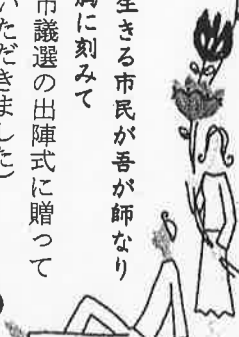 生きる市民が吾が師なり
胸に刻みて
市議選の出陣式に贈って
いただきました)